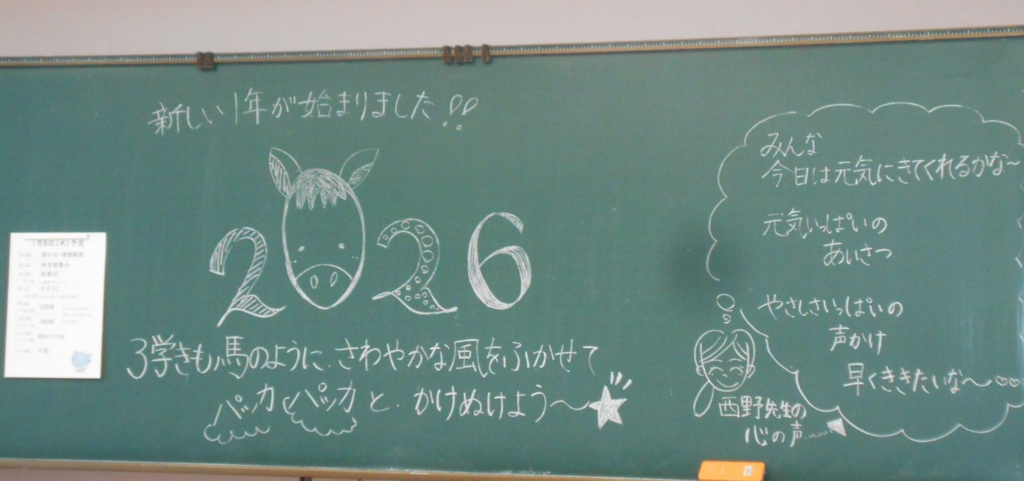 新しい1年が始まりました!!
2026
3学きも馬のように、さわやかな風をふかせて
パッカパッカと、かけぬけよう〜
みんな
今日は元気にきてくれるかな〜
元気いっぱいの
あいさつ
やさしさいっぱいの
声かけ
早くききたいな〜
西野先生の
心の声……
1月8日(木)予定